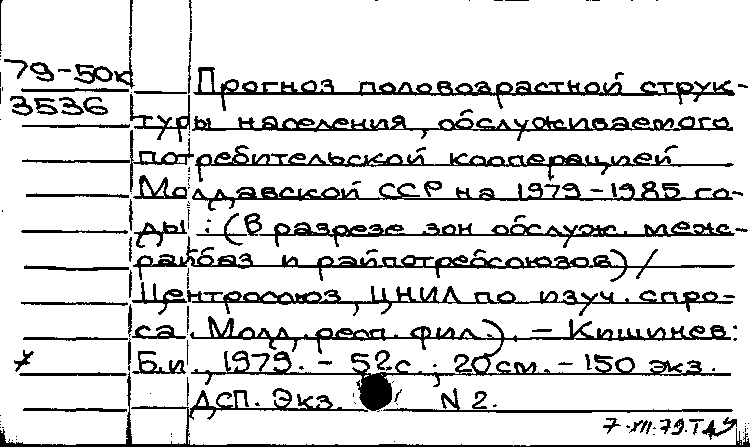 79-50к
3536
Прогноз половозрастной струк-
туры населения, обслуживаемого
потребительской кооперацией
Молдавской ССР на 1979-1985 го-
ды : (В разрезе зон обслуж. меж-
райбаз и райпотребсоюзов) /
Центросоюз, ЦНИЛ по изуч. спро-
са. Молд. респ. фил.). - Кишинев:
Б.и., 1979. - 52с.; 20см. - 150 экз.
ДСП. Экз. N 2.
7.XII.79.